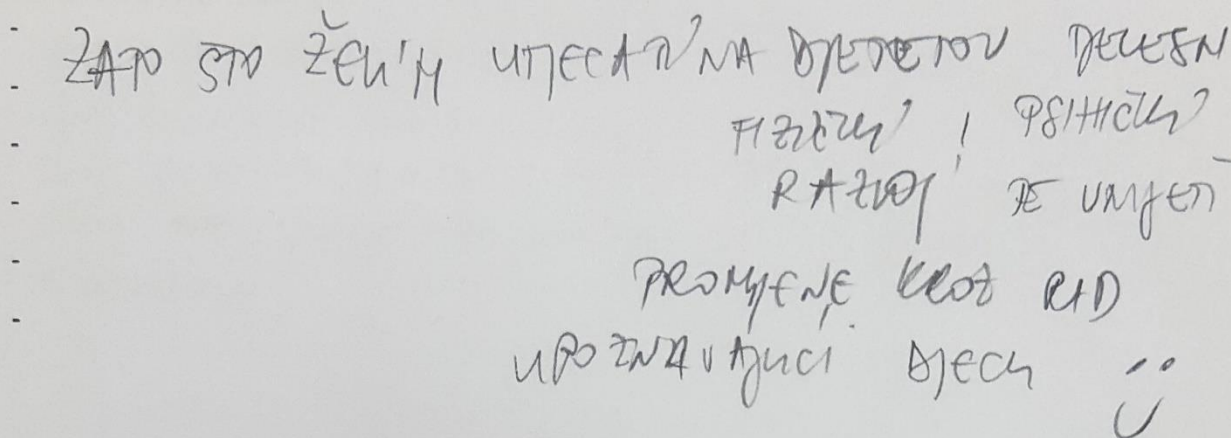 ZATO ŠTO ŽELIM UTJECATI NA DJETETOV TJELESNI
FIZIČKI I PSIHIČKI
RAZVOJ TE UNIJETI
PROMJENE KROZ RAD
UPOZNAVAJUĆI DJECU :)